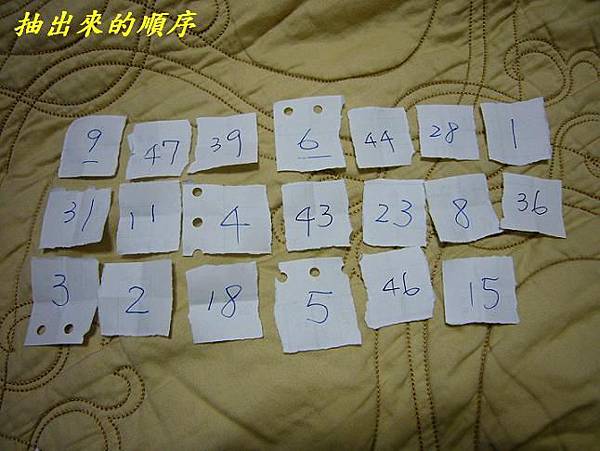 抽出來的順序
9 47 39 6 44 28 1
31 11 4 43 23 8 36
3 2 18 5 46 15